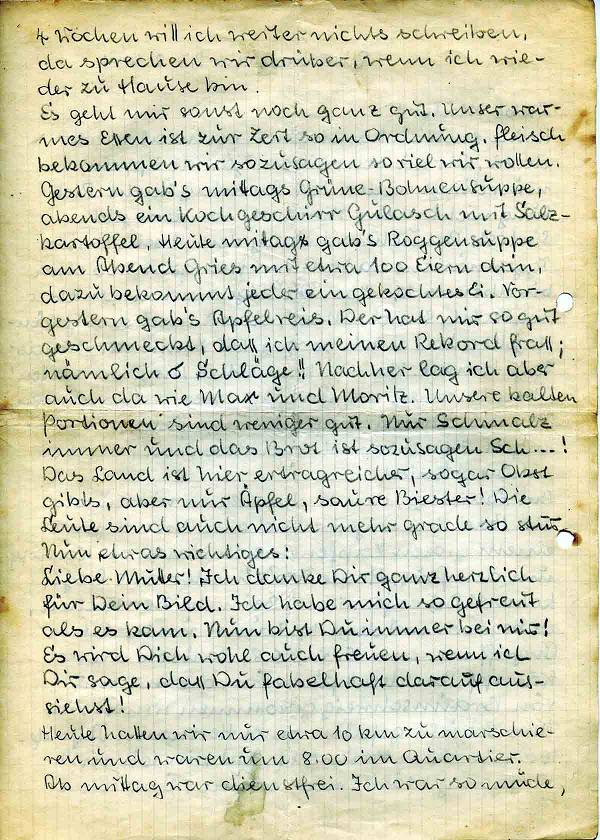 4 Wochen will ich weiter nichts schreiben,
da sprechen wir drüber, wenn ich wie-
der zu Hause bin.
Es geht mir sonst noch ganz gut. Unser war-
mes Essen ist zur Zeit so in Ordnung. Fleisch
bekommen wir sozusagen so viel wir wollen.
Gestern gab's mitags Grüne-Bohnensuppe,
abends ein Kochgeschirr Gulasch mit Salz-
kartoffel. Heute mitags gab's Roggensuppe
am Abend Gries mit etwa 100 Eiern drin,
dazu bekommt jeder ein gekochtes Ei. Vor-
gestern gab's Apfelreis. Der hat mir so gut
geschmeckt, daß ich meinen Rekord fraß;
nämlich 6 Schläge!! Nachher lag ich aber
auch da wie Max und Moritz. Unsere kalten
Portionen sind weniger gut. Nur Schmalz
immer und das Brot ist sozusagen Sch...!
Das Land ist hier ertragreicher, sogar Obst
gibts, aber nur Äpfel, saure Biester! Die
Leute sind auch nicht mehr grade so stur.
Nun etwas wichtiges:
Liebe Mutter! Ich danke Dir ganz herzlich
für Dein Bild. Ich habe mich so gefreut
als es kam. Nun bist Du immer bei mir!
Es wird Dich wohl auch freuen, wenn ich
Dir sage, daß Du fabelhaft darauf aus-
siehst!
Heute hatten wir nur etwa 10 km zu marschie-
ren und waren um 8.00 im Quartier.
Ab mittag war dienstfrei. Ich war so müde,